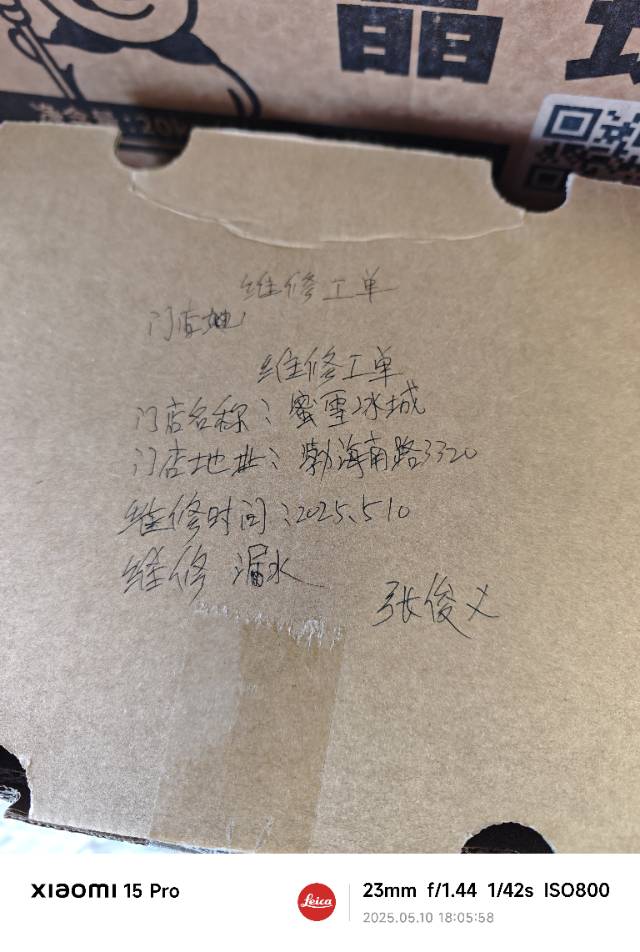 晶球
净含量:20k
维修工单
门店地
维修工单
门店名称:蜜雪冰城
门店地址:渤海南路3320
维修时间:2025.510
维修 漏水
张俊义
XIAOMI 15 Pro
Leica
23mm f/1.44 1/42s ISO800
2025.05.10 18:05:58